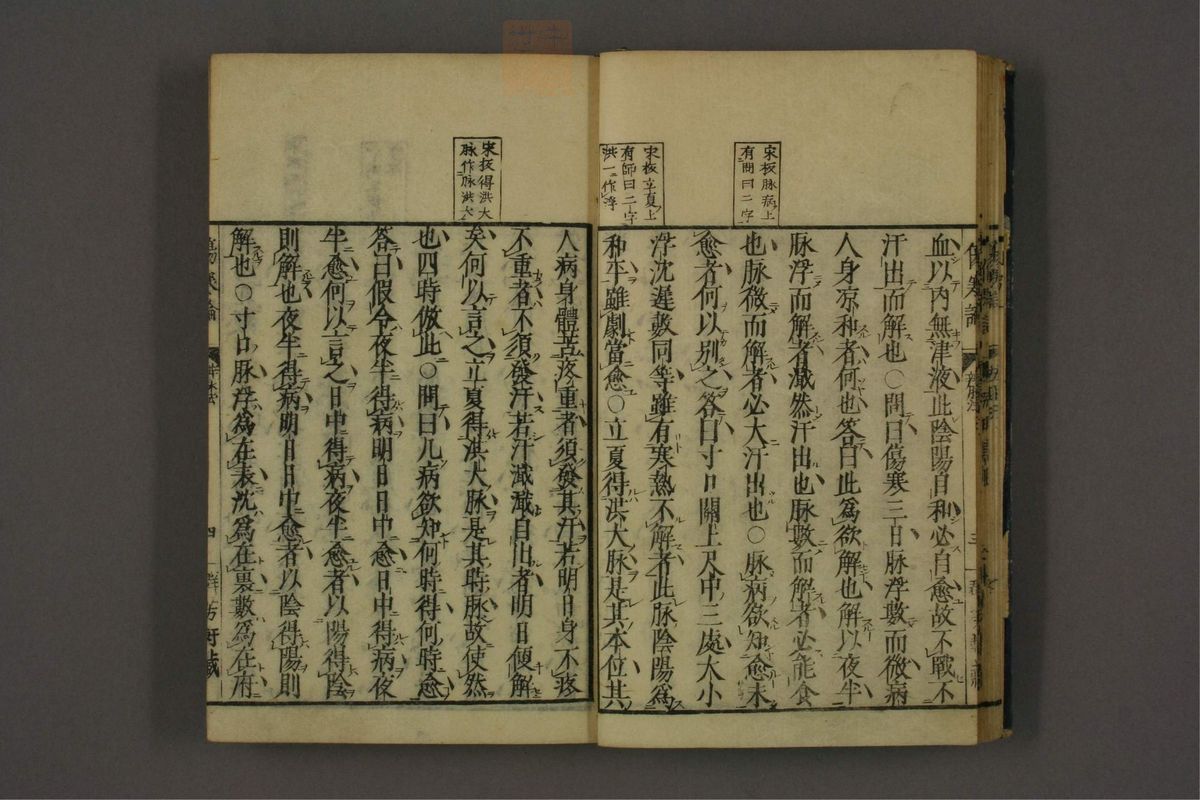 宋板脉病上
有問曰二字
宋板立夏上
有師曰二字
洪一作浮
血以内無津液此陰陽自和必自愈故不戰不
汗出而解也○問曰傷寒三日脉浮數而微病
人身凉和者何也答曰此爲欲解也解以夜半
脉浮而解者濈然汗出也脉數而解者必能食
也脉微而解者必大汗出也○脉病欲知愈未
愈者何以別之答曰寸口關上尺中三處大小
浮沈遲數同等雖有寒熱不解者此脉陰陽爲
和平雖劇當愈○立夏得洪大脉是其本位其
宋板得洪大
脉作脉洪大
人病身體苦疼重者須發其汗若明日身不疼
不重者不須發汗若汗濈濈自出者明日便解
矣何以言之立夏得洪大脉是其時脉故使然
也四時倣此○問曰凡病欲知何時得何時愈
答曰假令夜半得病明日日中愈日中得病夜
半愈何以言之日中得病夜半愈者以陽得陰
則解也夜半得病明日日中愈者以陰得陽則
解也○寸口脉浮爲在表沈爲在裏數爲在府
傷寒論 辨脉法 四